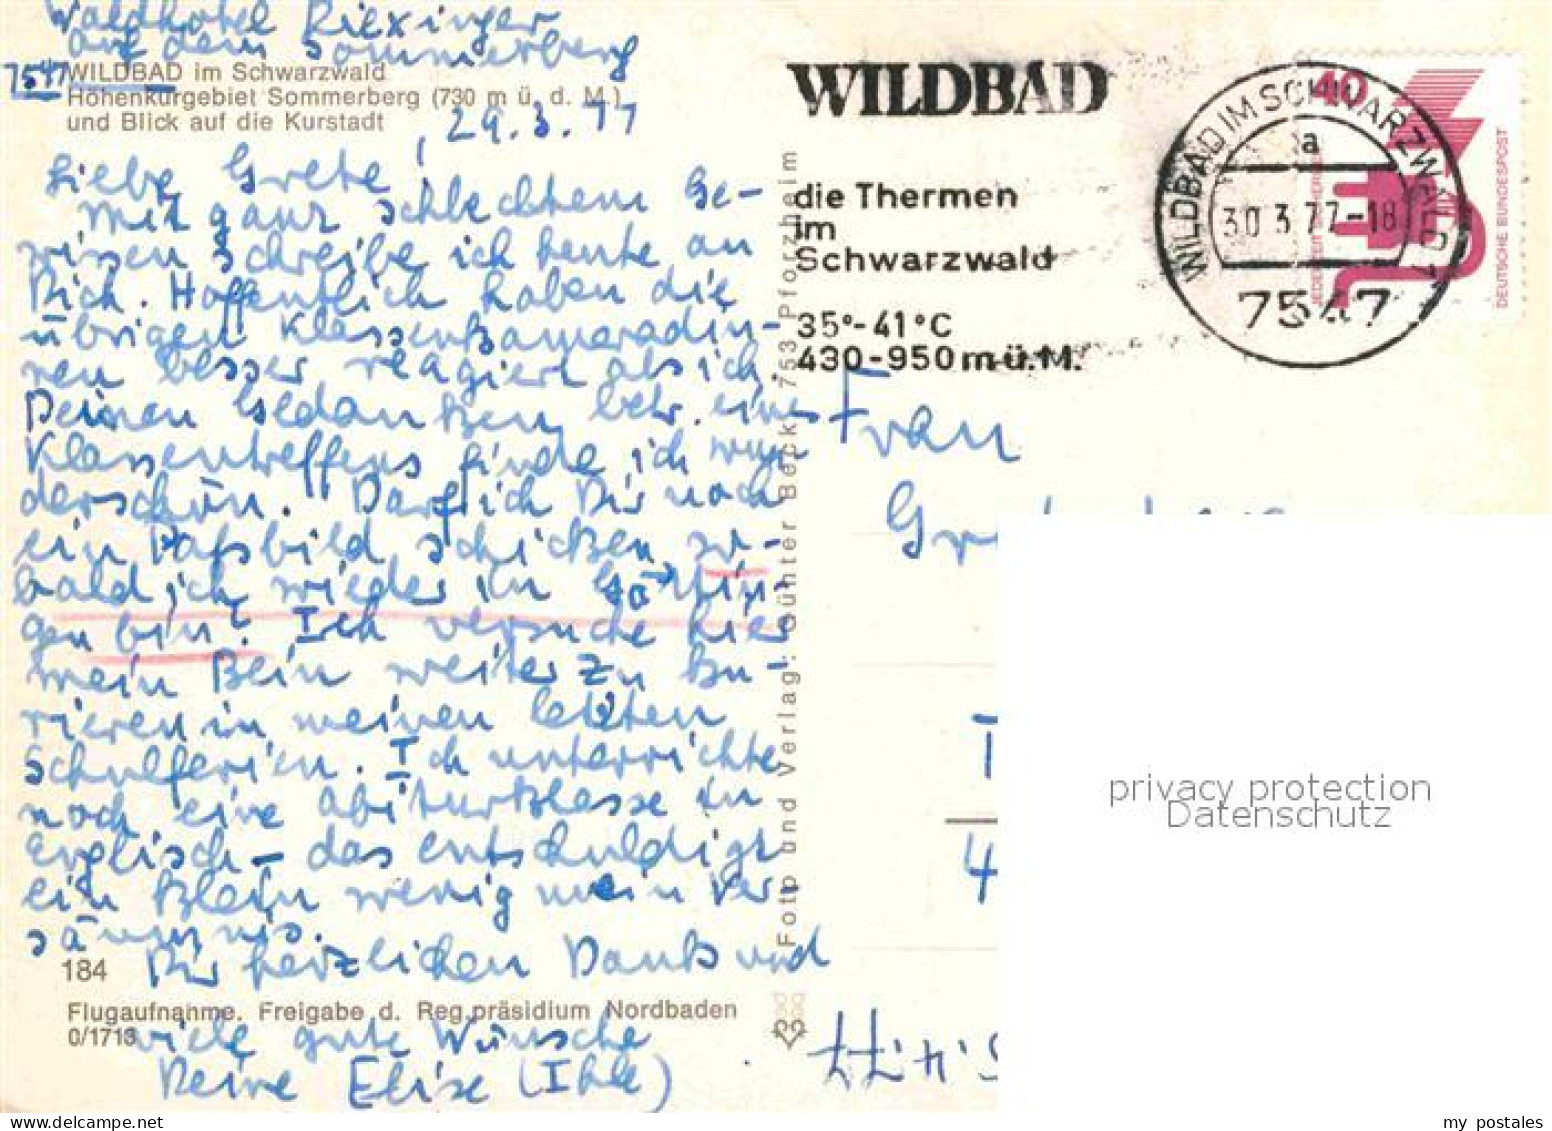 Waldhotel Riexinger
auf dem Sommerberg
7547 WILDBAD im Schwarzwald
Höhenkurgebiet Sommerberg (730 m ü. d. M.)
und Blick auf die Kurstadt
29.3.77
Liebe Grete,
Mit ganz schlechtem Ge-
wissen schreibe ich heute an
Dich. Hoffentlich haben die
übrigen Klassenkameradin-
nen besser reagiert als ich.
Deinen Gedanken betr. eines
Klassentreffens finde ich wun
derschön. Darf ich Dir noch
ein Paßbild schicken, so-
bald ich wieder in Göttin-
gen bin? Ich versuche hier
mein Bein weiter zu ku-
rieren in meinen letzten
Schulferien. Ich unterrichte
noch eine Abiturklasse in
Englisch – das entschuldigt
ein klein wenig mein Ver
säumnis.
Dir herzlichen Dank und
viele gute Wünsche
Deine Elise (Ihle)
184
Flugaufnahme. Freigabe d. Reg.präsidium Nordbaden
0/1713
Foto und Verlag: Günther Beck, 753 Pforzheim
WILDBAD
die Thermen
im
Schwarzwald
35°-41°C
430-950 m ü.M.
WILDBAD IM SCHWARZWALD 1
a
30.3.77-18
7547
40
JEDERZEIT SICHERHEIT
DEUTSCHE BUNDESPOST
Frau
4
privacy protection
Datenschutz
my postales